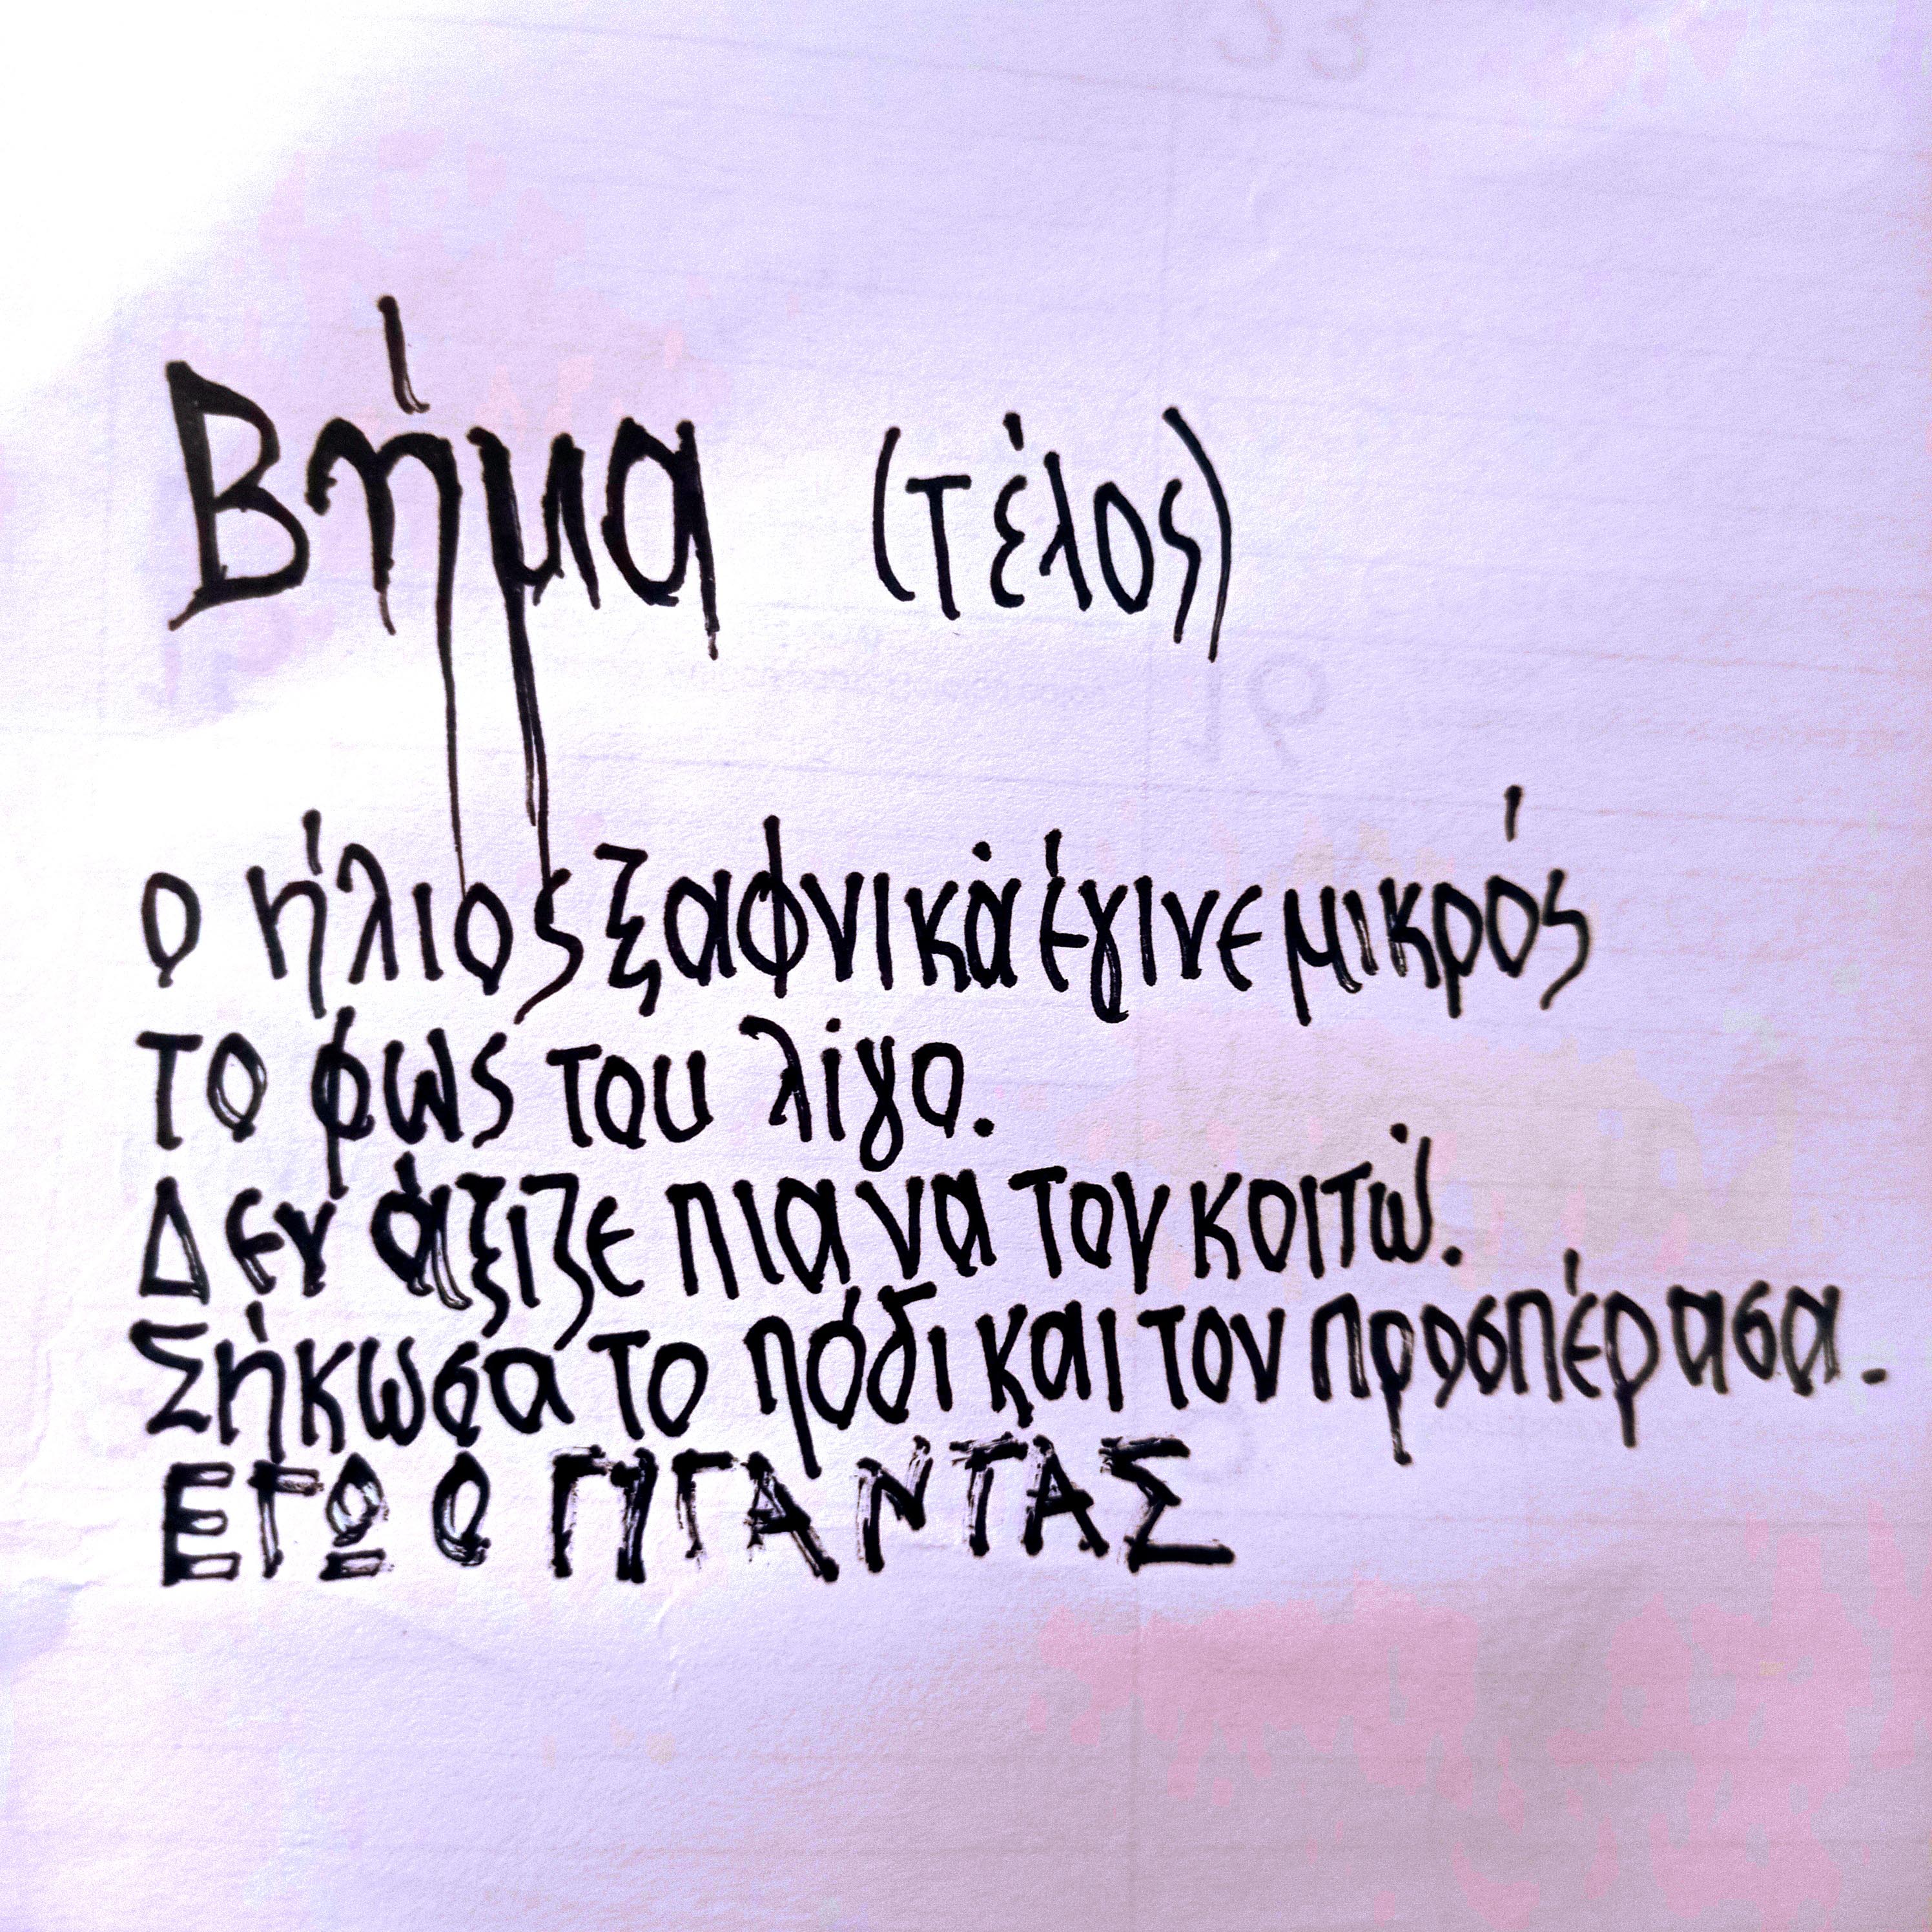 Βήμα (τέλος)
ο ήλιος ξαφνικά έγινε μικρός
το φως του λίγο.
Δεν άξιζε πια να τον κοιτώ.
Σήκωσα το πόδι και τον προσπέρασα.
ΕΓΩ Ο ΓΙΓΑΝΤΑΣ